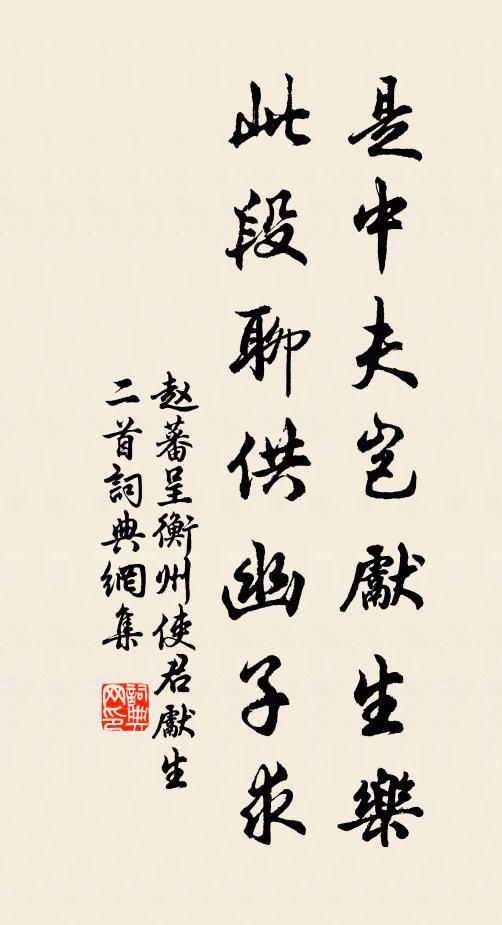 是中夫岂献生樂
此段聊供幽子求
赵蕃呈衡州使君献生
二首詞典網集
詞典网印